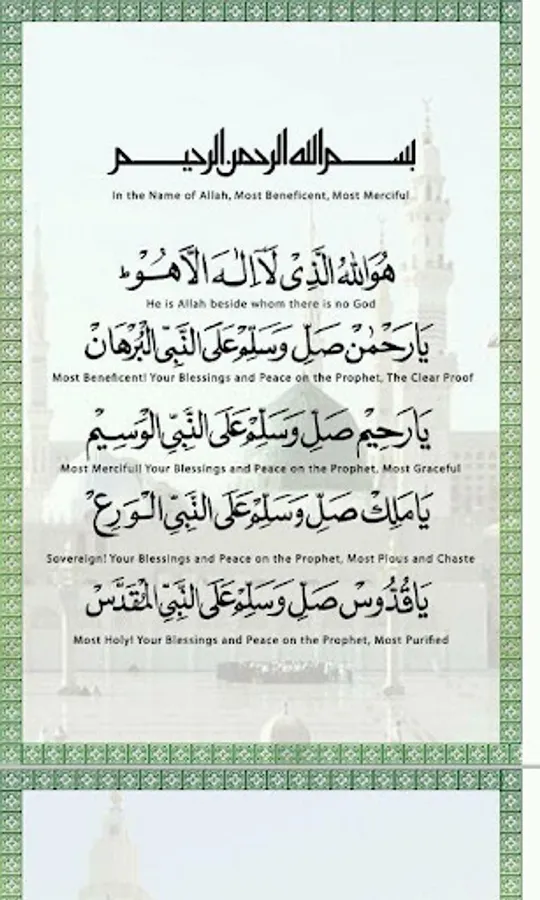 بسم الله الرحمن الرحيم
In the Name of Allah, Most Beneficent, Most Merciful
هُوَاللهُ الَّذِىْ لَآاِلٰـهَ اِلَّاهُـوَ ط
He is Allah beside whom there is no God
يَارَحْمٰنْ صَلِّ وَسَلِّمْ عَلَى النَّبِيِّ الْبُرْهَانْ
Most Beneficent! Your Blessings and Peace on the Prophet, The Clear Proof
يَارَحِيْمْ صَلِّ وَسَلِّمْ عَلَى النَّبِيِّ الْوَسِيْمْ
Most Merciful! Your Blessings and Peace on the Prophet, Most Graceful
يَامَلِكْ صَلِّ وَسَلِّمْ عَلَى النَّبِيِّ الْوَرِعْ
Sovereign! Your Blessings and Peace on the Prophet, Most Pious and Chaste
يَاقُدُّوسْ صَلِّ وَسَلِّمْ عَلَى النَّبِيِّ الْمُقَدَّسْ
Most Holy! Your Blessings and Peace on the Prophet, Most Purified